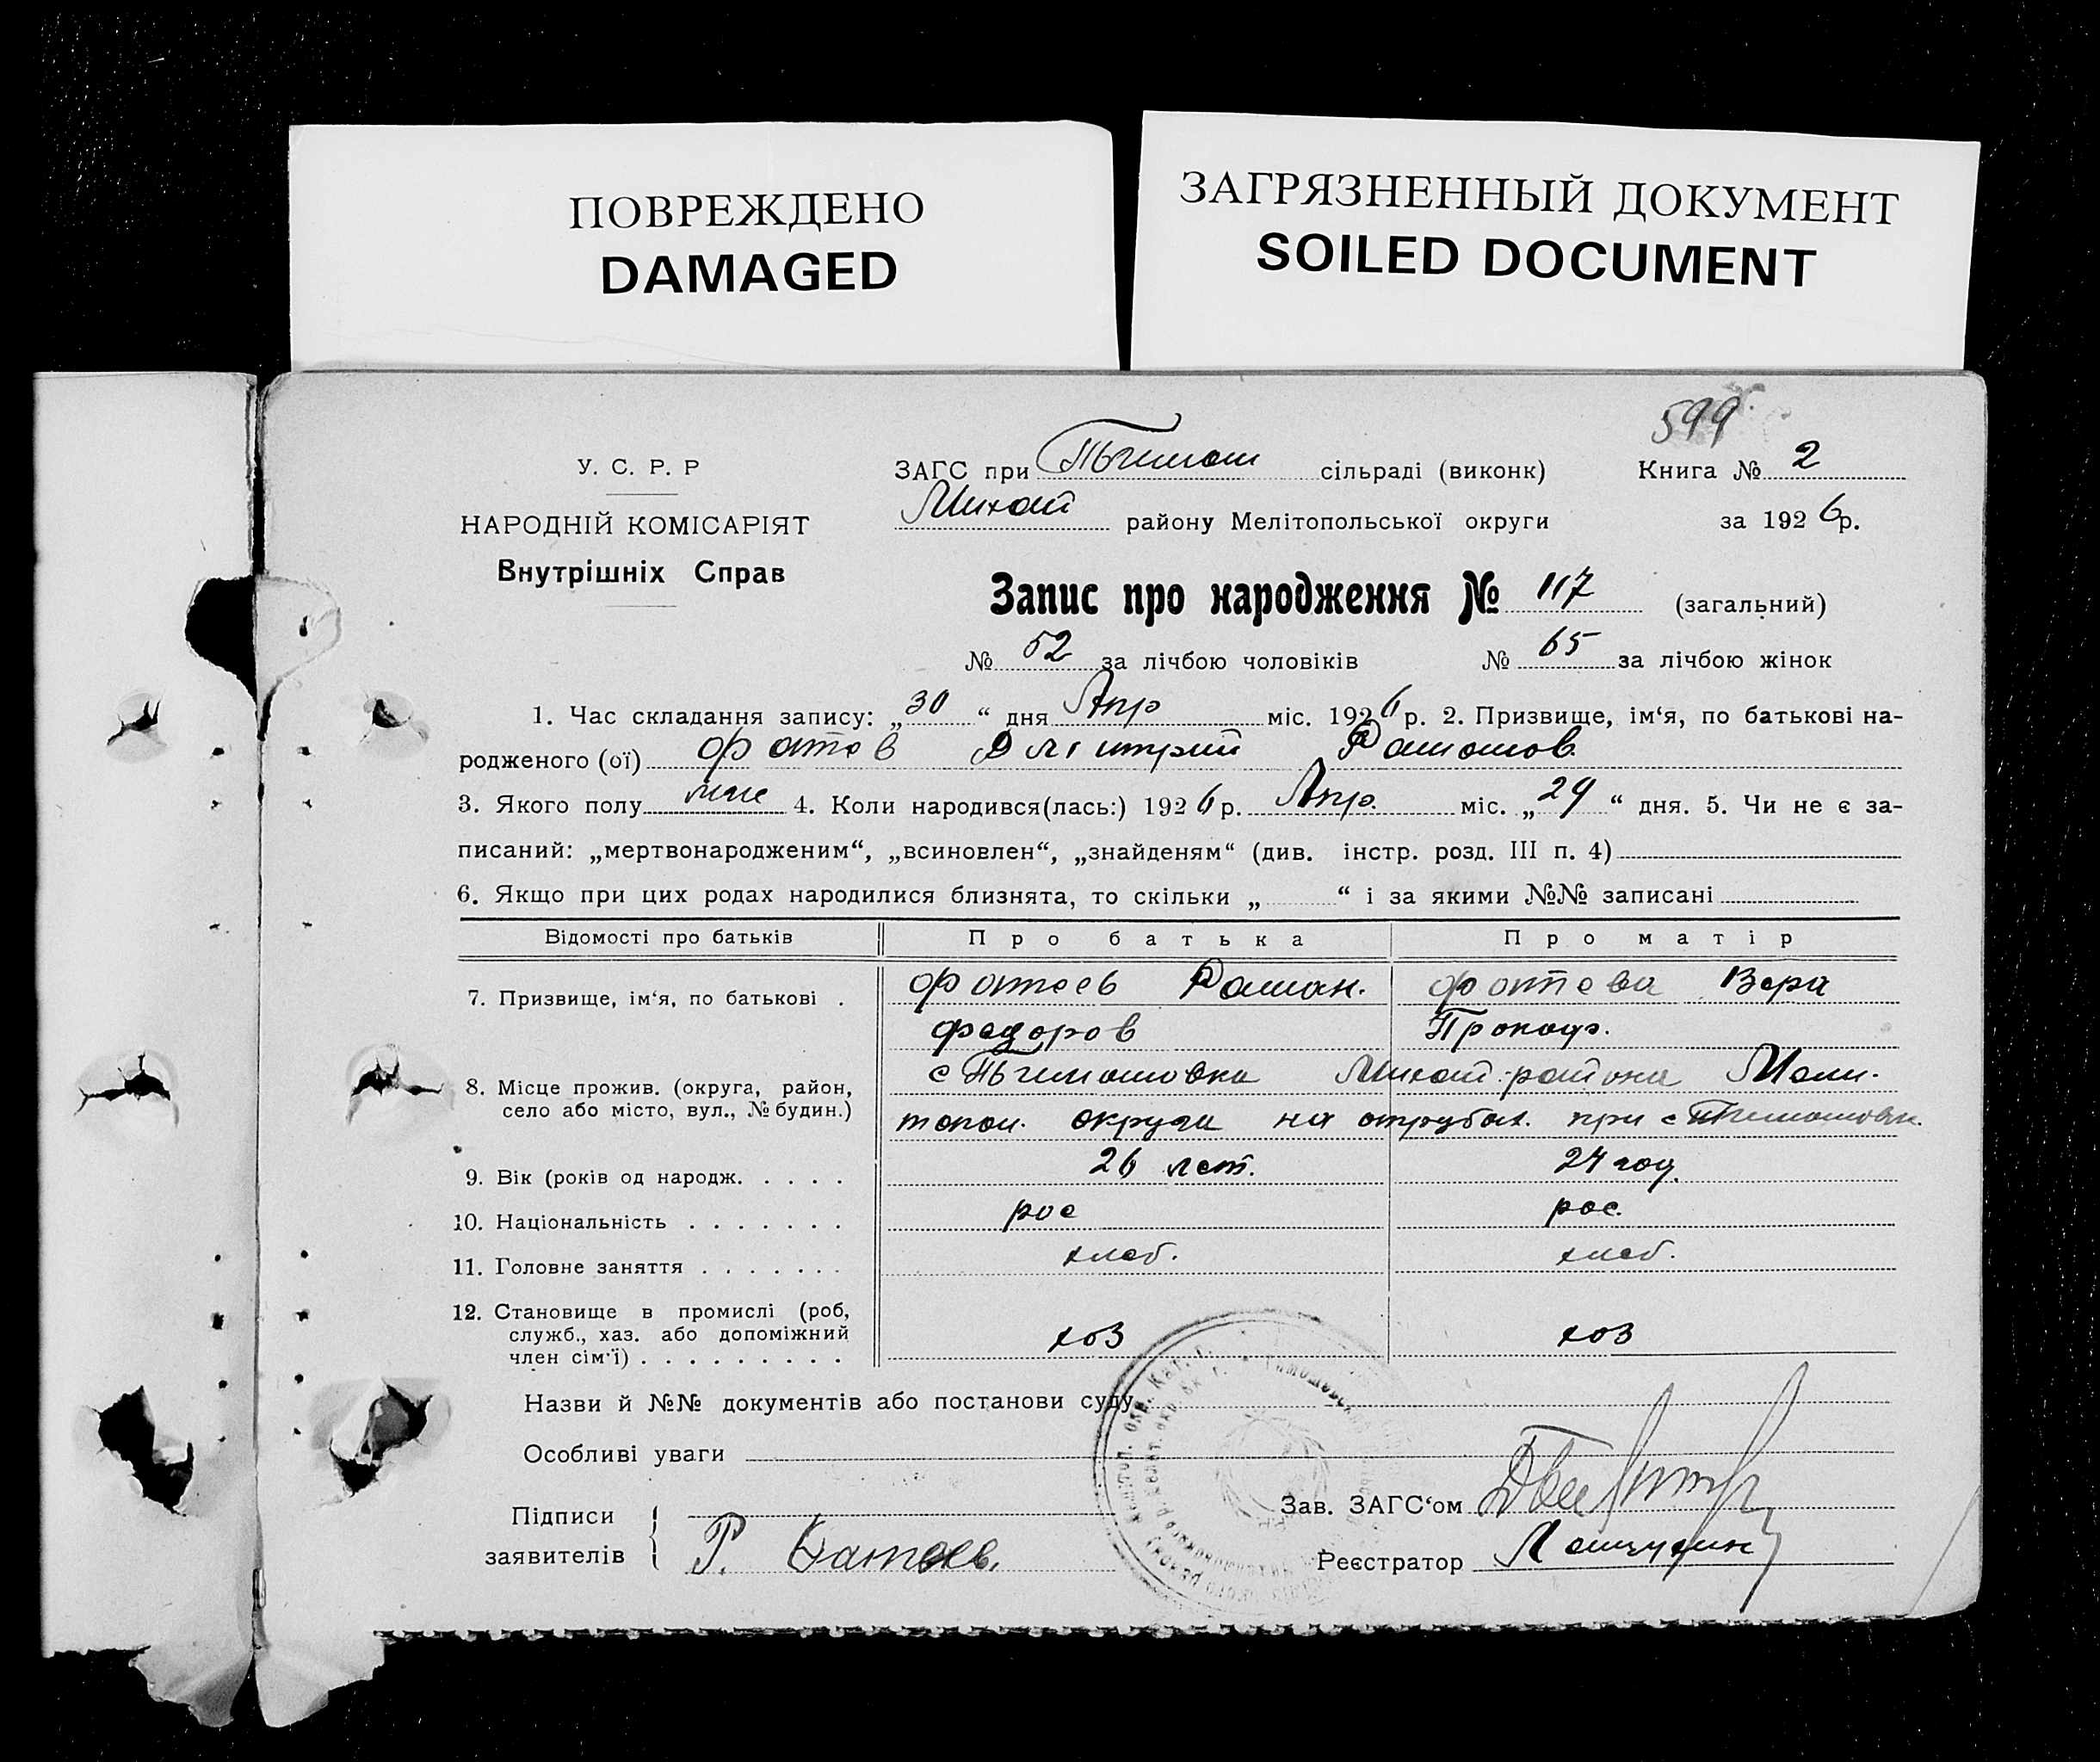 ПОВРЕЖДЕНО
DAMAGED
ЗАГРЯЗНЕННЫЙ ДОКУМЕНТ
SOILED DOCUMENT
599
У. С. Р. Р
НАРОДНІЙ КОМІСАРІЯТ
Внутрішніх Справ
ЗАГС при Тимош сільраді (виконк) Книга № 2
Михай району Мелітопольської округи за 1926 р.
Запис про народження № 117 (загальний)
№ 52 за лічбою чоловіків № 65 за лічбою жінок
1. Час складання запису: „30“ дня Апр міс. 1926 р. 2. Призвище, ім‘я, по батькові на-
родженого (ої) Фатов Дмитрий Романов
3. Якого полу муж 4. Коли народився(лась:) 1926 р. Апр. міс. „29“ дня. 5. Чи не є за-
писаний: „мертвонародженим“, „всиновлен“, „знайденям“ (див. інстр. розд. III п. 4)
6. Якщо при цих родах народилися близнята, то скільки „ “ і за якими №№ записані
Відомості про батьків Про батька Про матір
7. Призвище, ім‘я, по батькові . Фатеев Роман. Фатева Вера
Федоров Прокоф.
8. Місце прожив. (округа, район, село або місто, вул., № будин.) с Тимошовка Михай. района Мели-
топол. округа на отрубах при с Тимошовк.
9. Вік (років од народж. . . . . 26 лет. 24 год.
10. Національність . . . . . . . рос рос.
11. Головне заняття . . . . . . . хлеб. хлеб.
12. Становище в промислі (роб,
служб., хаз. або допоміжний
член сім‘ї) . . . . . . . . . хоз хоз
Назви й №№ документів або постанови суду
Особливі уваги
Підписи
заявителів Р. Фатеев.
Зав. ЗАГС‘ом
Реєстратор